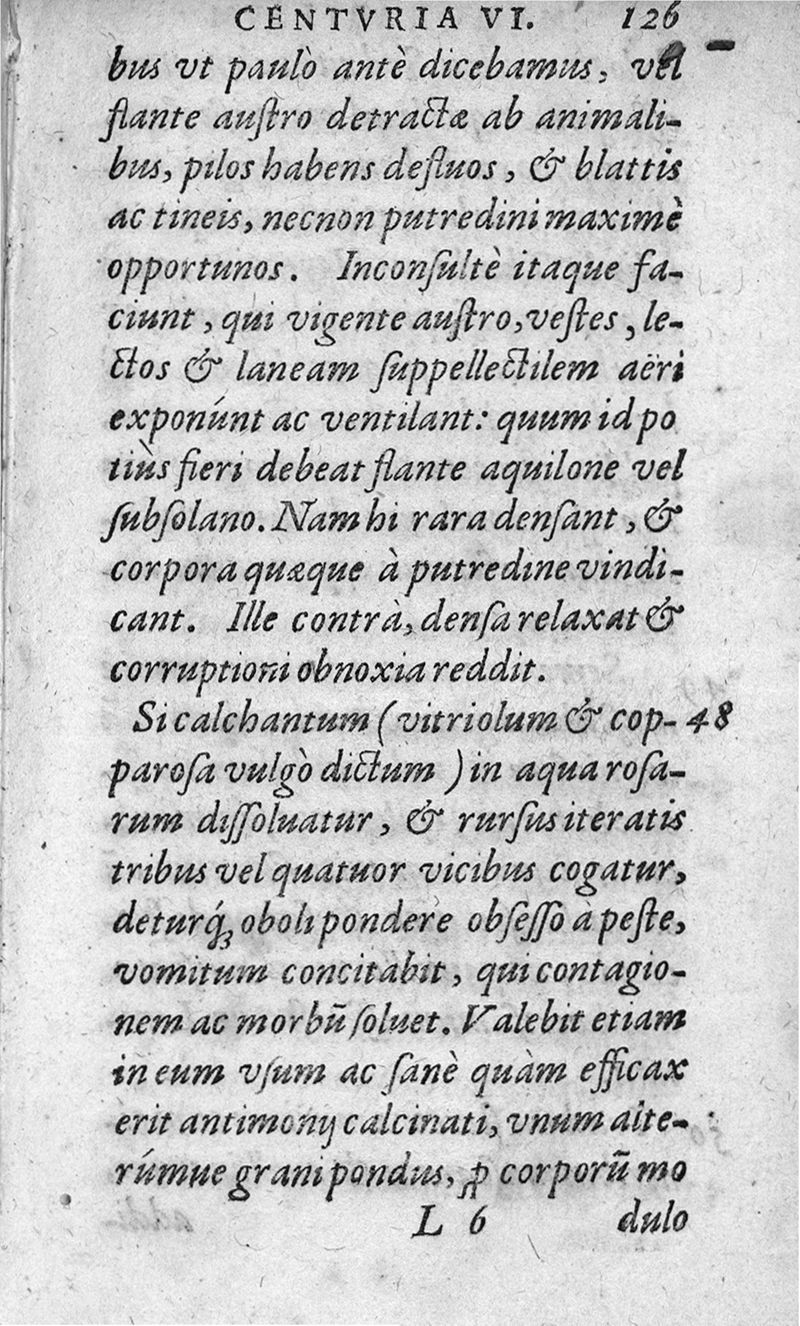 CENTVRIA VI. 126
bus vt paulò antè dicebamus, vel
flante auſtro detractæ ab animali-
bus, pilos habens defluos, & blattis
ac tineis, necnon putredini maximè
opportunos. Inconſultè itaque fa-
ciunt, qui vigente auſtro, veſtes, le-
ctos & laneam ſuppellectilem aëri
exponúnt ac ventilant: quum id po
tiùs fieri debeat flante aquilone vel
ſubſolano. Nam hi rara denſant, &
corpora quæque à putredine vindi-
cant. Ille contrà, denſa relaxat &
corruptioni obnoxia reddit.
Si calchantum (vitriolum & cop- 48
paroſa vulgò dictum) in aqua roſa-
rum diſſoluatur, & rurſus iteratis
tribus vel quatuor vicibus cogatur,
deturq́; oboli pondere obſeſſo à peſte,
vomitum concitabit, qui contagio-
nem ac morbū ſoluet. Valebit etiam
in eum vſum ac ſanè quàm efficax
erit antimonij calcinati, vnum alte-
rúmue grani pondus, ꝓ corporū mo
L 6 dulo